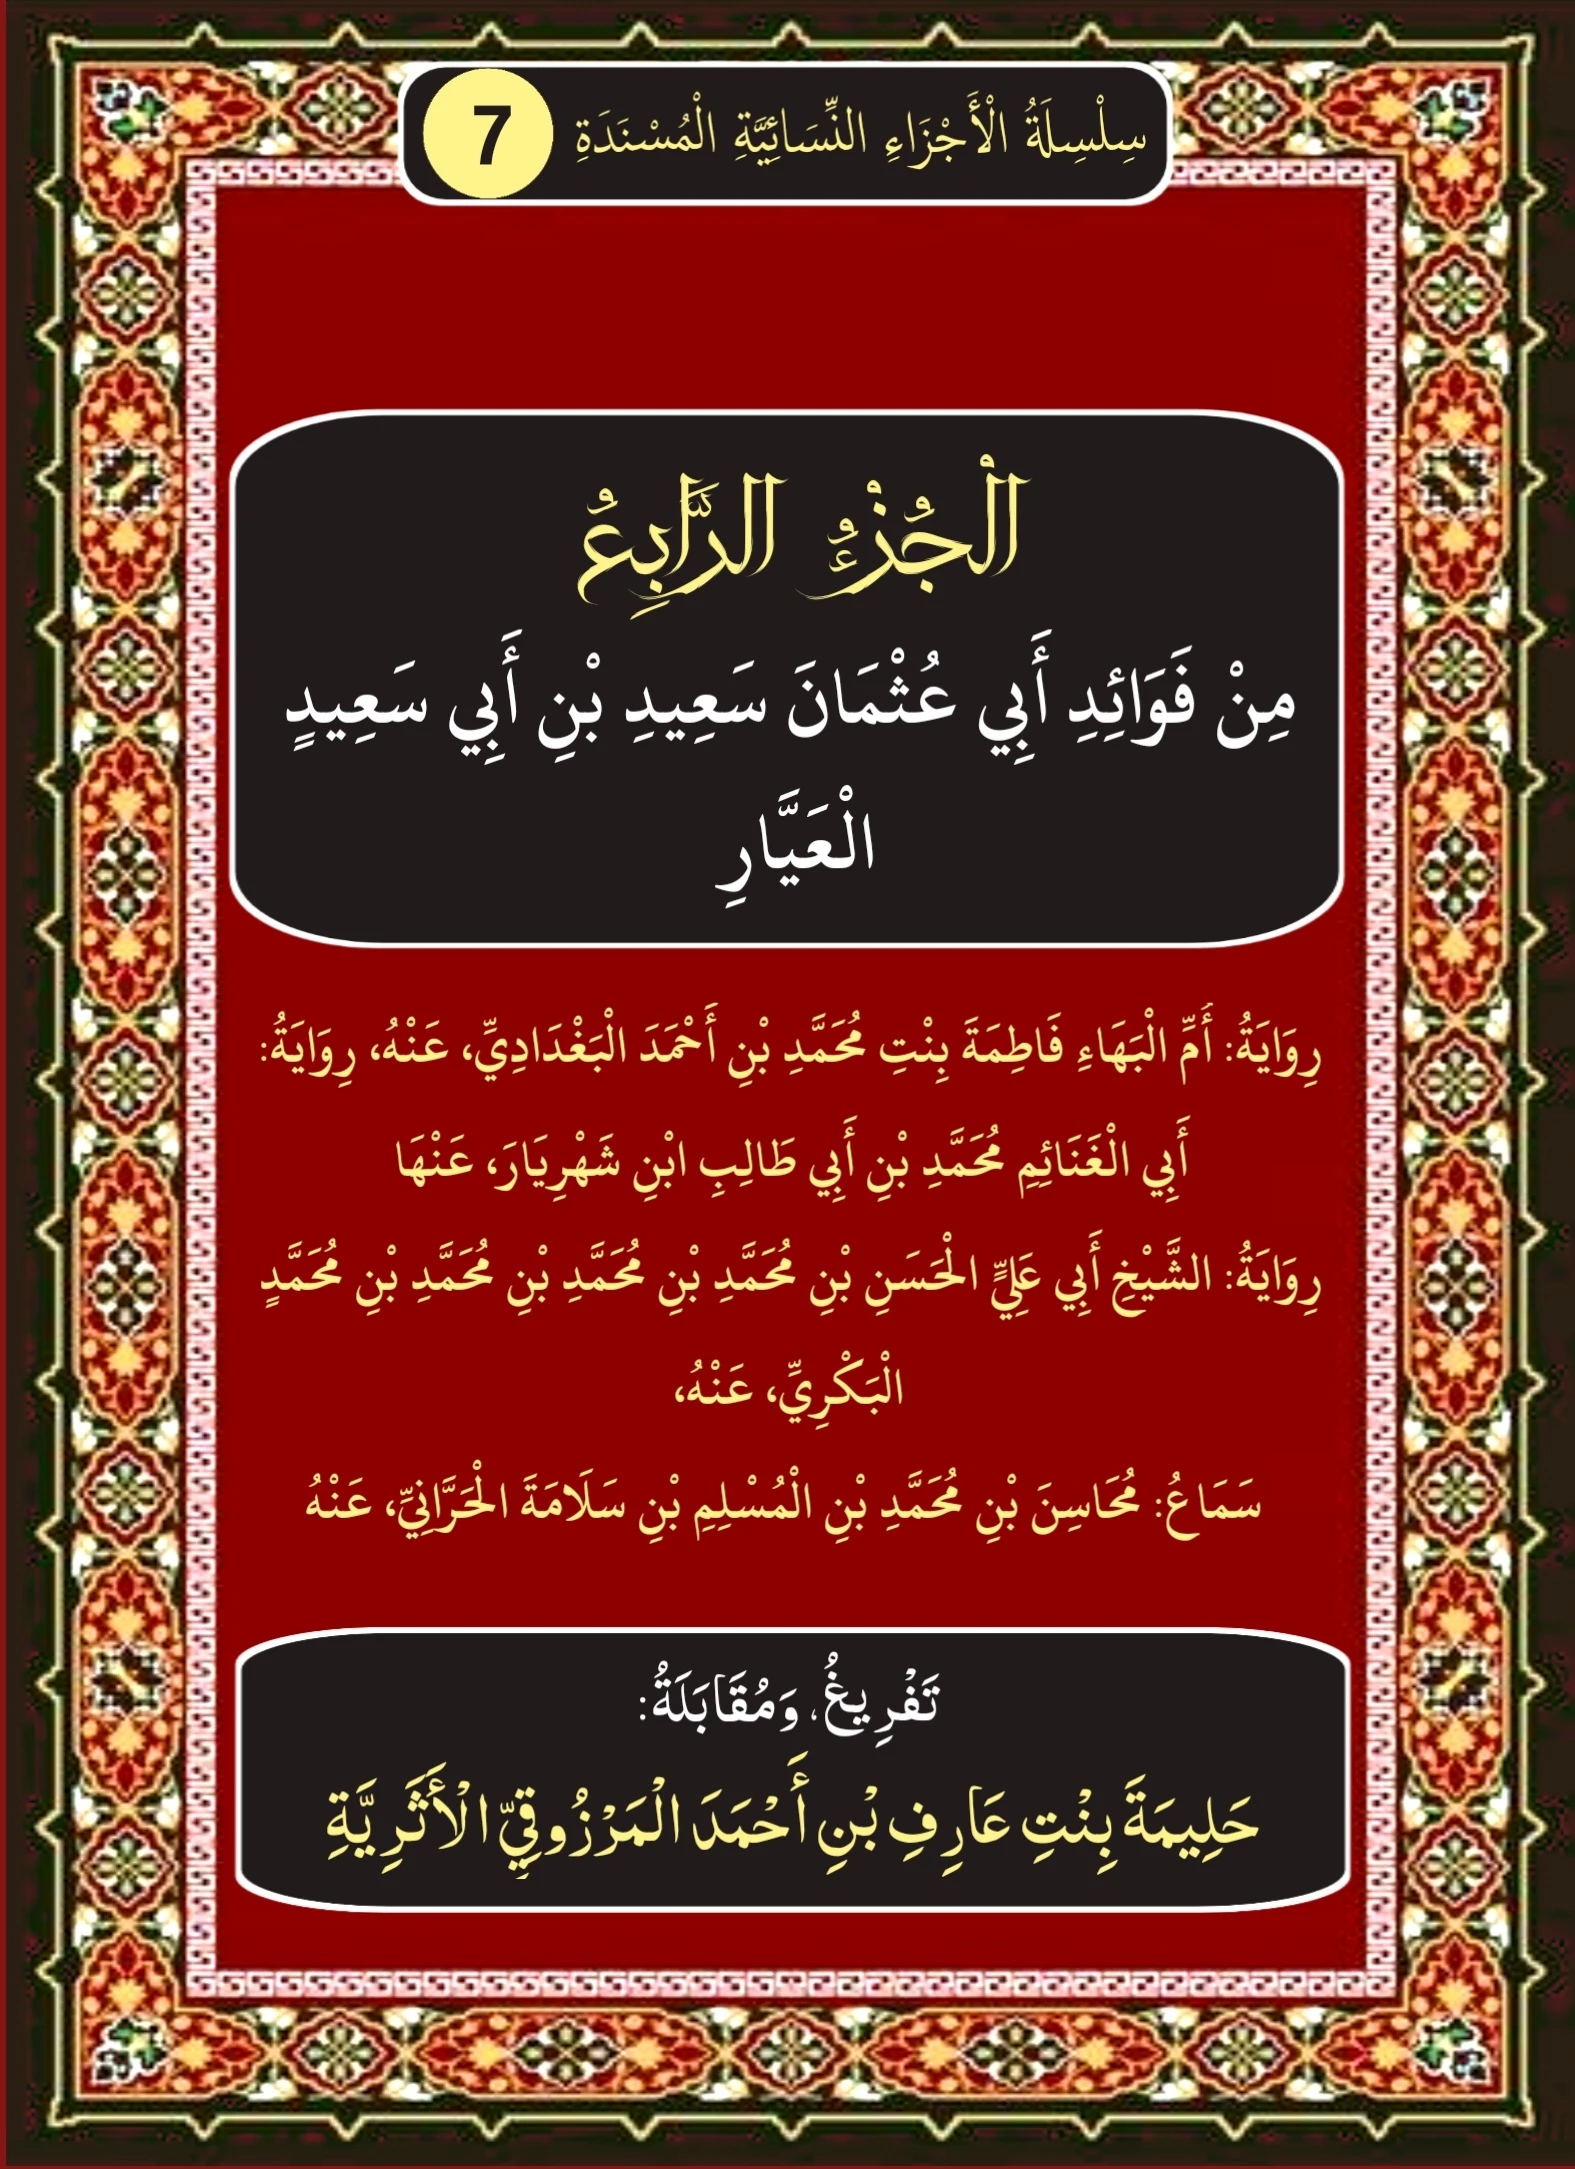 سِلْسِلَةُ الْأَجْزَاءِ النِّسَائِيَّةِ الْمُسْنَدَةِ 7
الْجُزْءُ الرَّابِعُ
مِنْ فَوَائِدِ أَبِي عُثْمَانَ سَعِيدِ بْنِ أَبِي سَعِيدٍ
الْعَيَّارِ
رِوَايَةُ: أُمِّ الْبَهَاءِ فَاطِمَةَ بِنْتِ مُحَمَّدِ بْنِ أَحْمَدَ الْبَغْدَادِيِّ، عَنْهُ، رِوَايَةُ:
أَبِي الْغَنَائِمِ مُحَمَّدِ بْنِ أَبِي طَالِبِ ابْنِ شَهْرِيَارَ، عَنْهَا
رِوَايَةُ: الشَّيْخِ أَبِي عَلِيٍّ الْحَسَنِ بْنِ مُحَمَّدِ بْنِ مُحَمَّدِ بْنِ مُحَمَّدِ بْنِ مُحَمَّدٍ
الْبَكْرِيِّ، عَنْهُ،
سَمَاعُ: مُحَاسِنَ بْنِ مُحَمَّدِ بْنِ الْمُسْلِمِ بْنِ سَلَامَةَ الْحَرَّانِيِّ، عَنْهُ
تَفْرِيغُ، وَمُقَابَلَةُ:
حَلِيمَةَ بِنْتِ عَارِفِ بْنِ أَحْمَدَ الْمَرْزُوقِيِّ الْأَثَرِيَّةِ